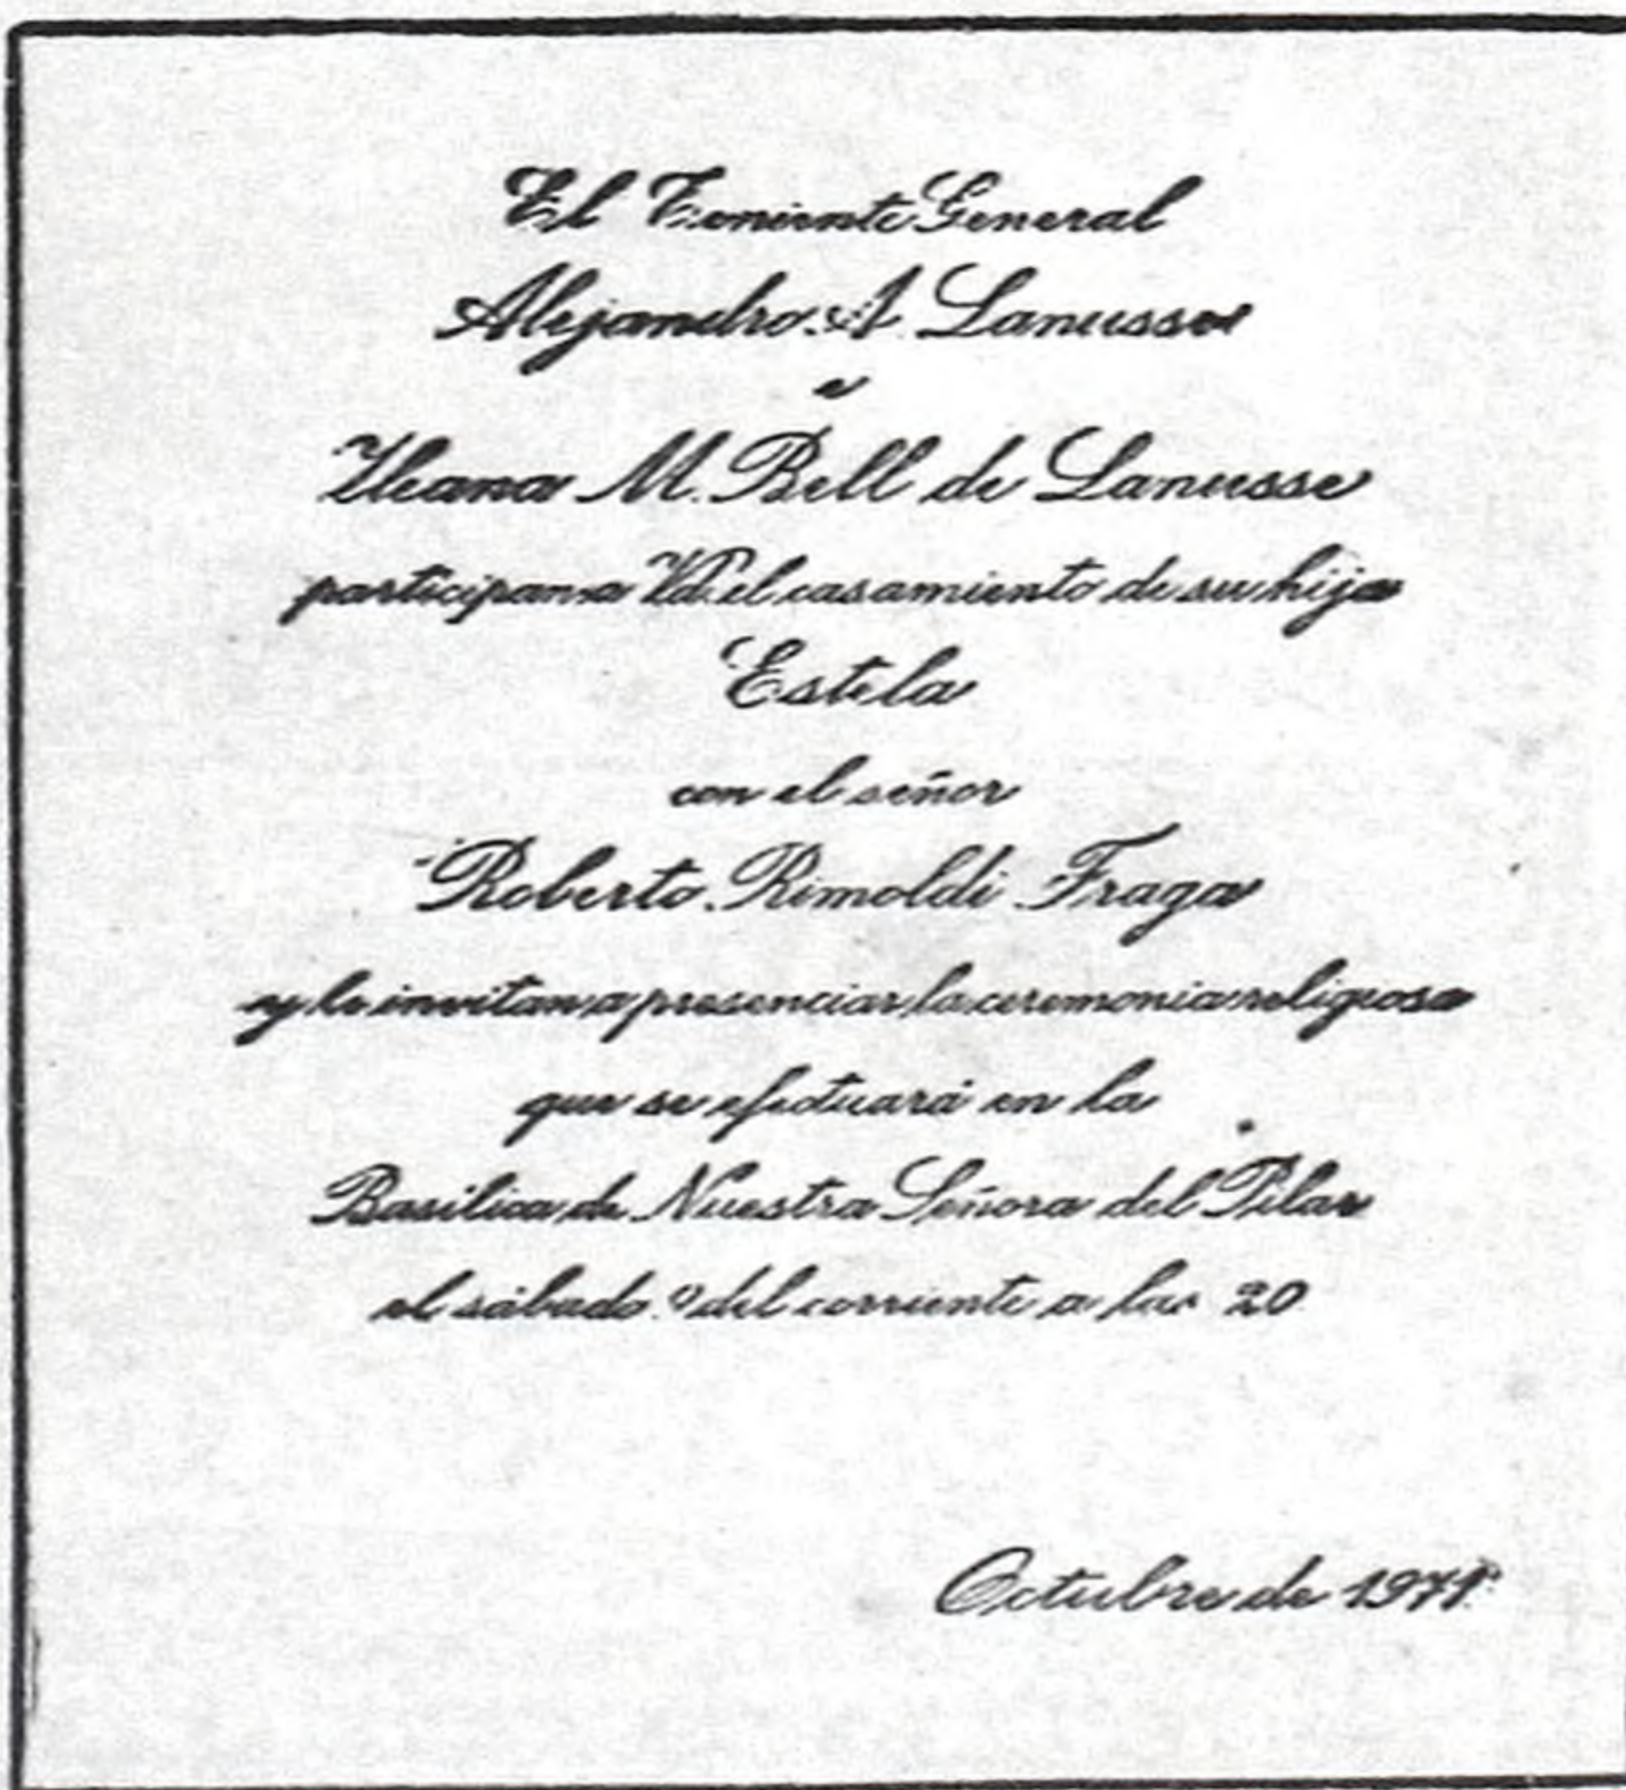 El Teniente General
Alejandro A. Lanusse
e
Ileana M. Bell de Lanusse
participan a Vd. el casamiento de su hija
Estela
con el señor
Roberto Rimoldi Fraga
y le invitan a presenciar la ceremonia religiosa
que se efectuará en la
Basílica de Nuestra Señora del Pilar
el sábado del corriente a las 20
Octubre de 1971